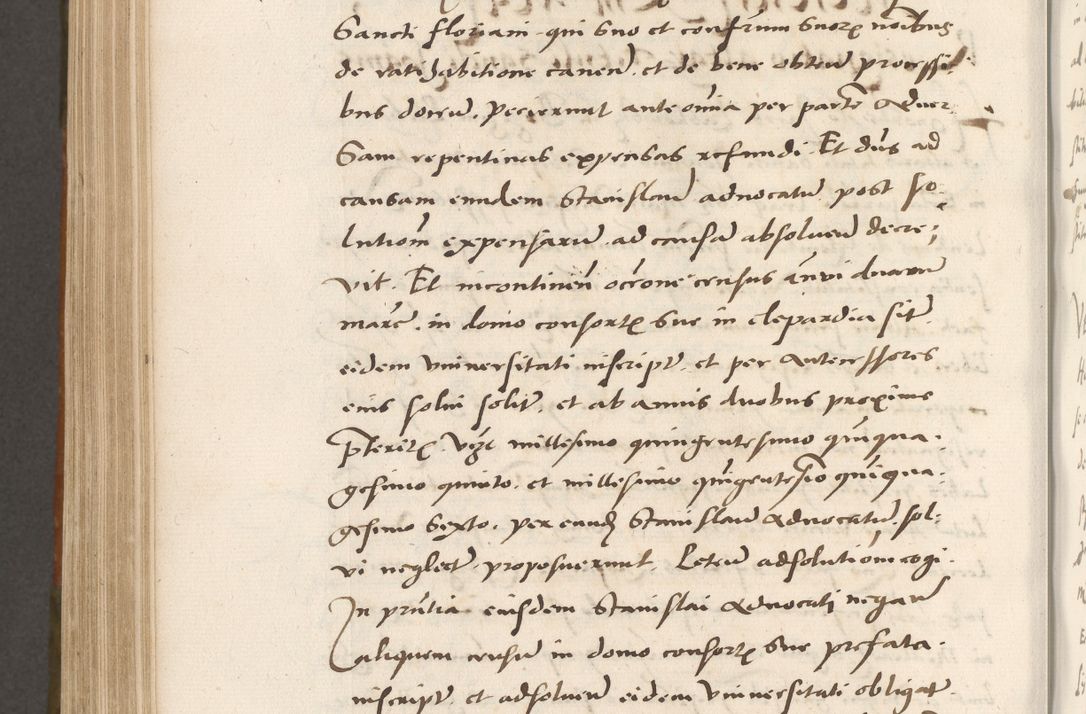 Sancti floriani qui suo et confrum suorʒ noībus
de ratihabitione canen̄ et de bene obten̄ processi
bus docen̄. Pecierunt ante oīa per partē Aduer-
sam repentinas expensas refundi. Et dūs ad
causam eiusdem Stanislaū aduocatū post so-
lutiōm expensarū ad causā absoluen̄ decre;
vit. Et incontinen̄ occōne census añui duarū
marc̄ in domo consortʒ sue in clepardia sit̄
eidem vniuersitati inscript̄ et per Antecessores
eius solui solit̄, et ab annis duobus proxime
p̄terit̄ʒ vʒt millesimo quingentesimo quīqua-
gesimo quinto et millesimo quīgentesīo quīqua-
gesimo sexto. per eund Stanislaū Aduocatū sol:
vi neglect̄ proposuerunt. Leteū adsolutiōm cogi.
In pr̄ntia eiusdem Stanislai Aduocati negan̄
aliquem censū in domo consortʒ sue prefata.
inscript̄ et adsoluen̄ eidem vniuersitati obligat̄